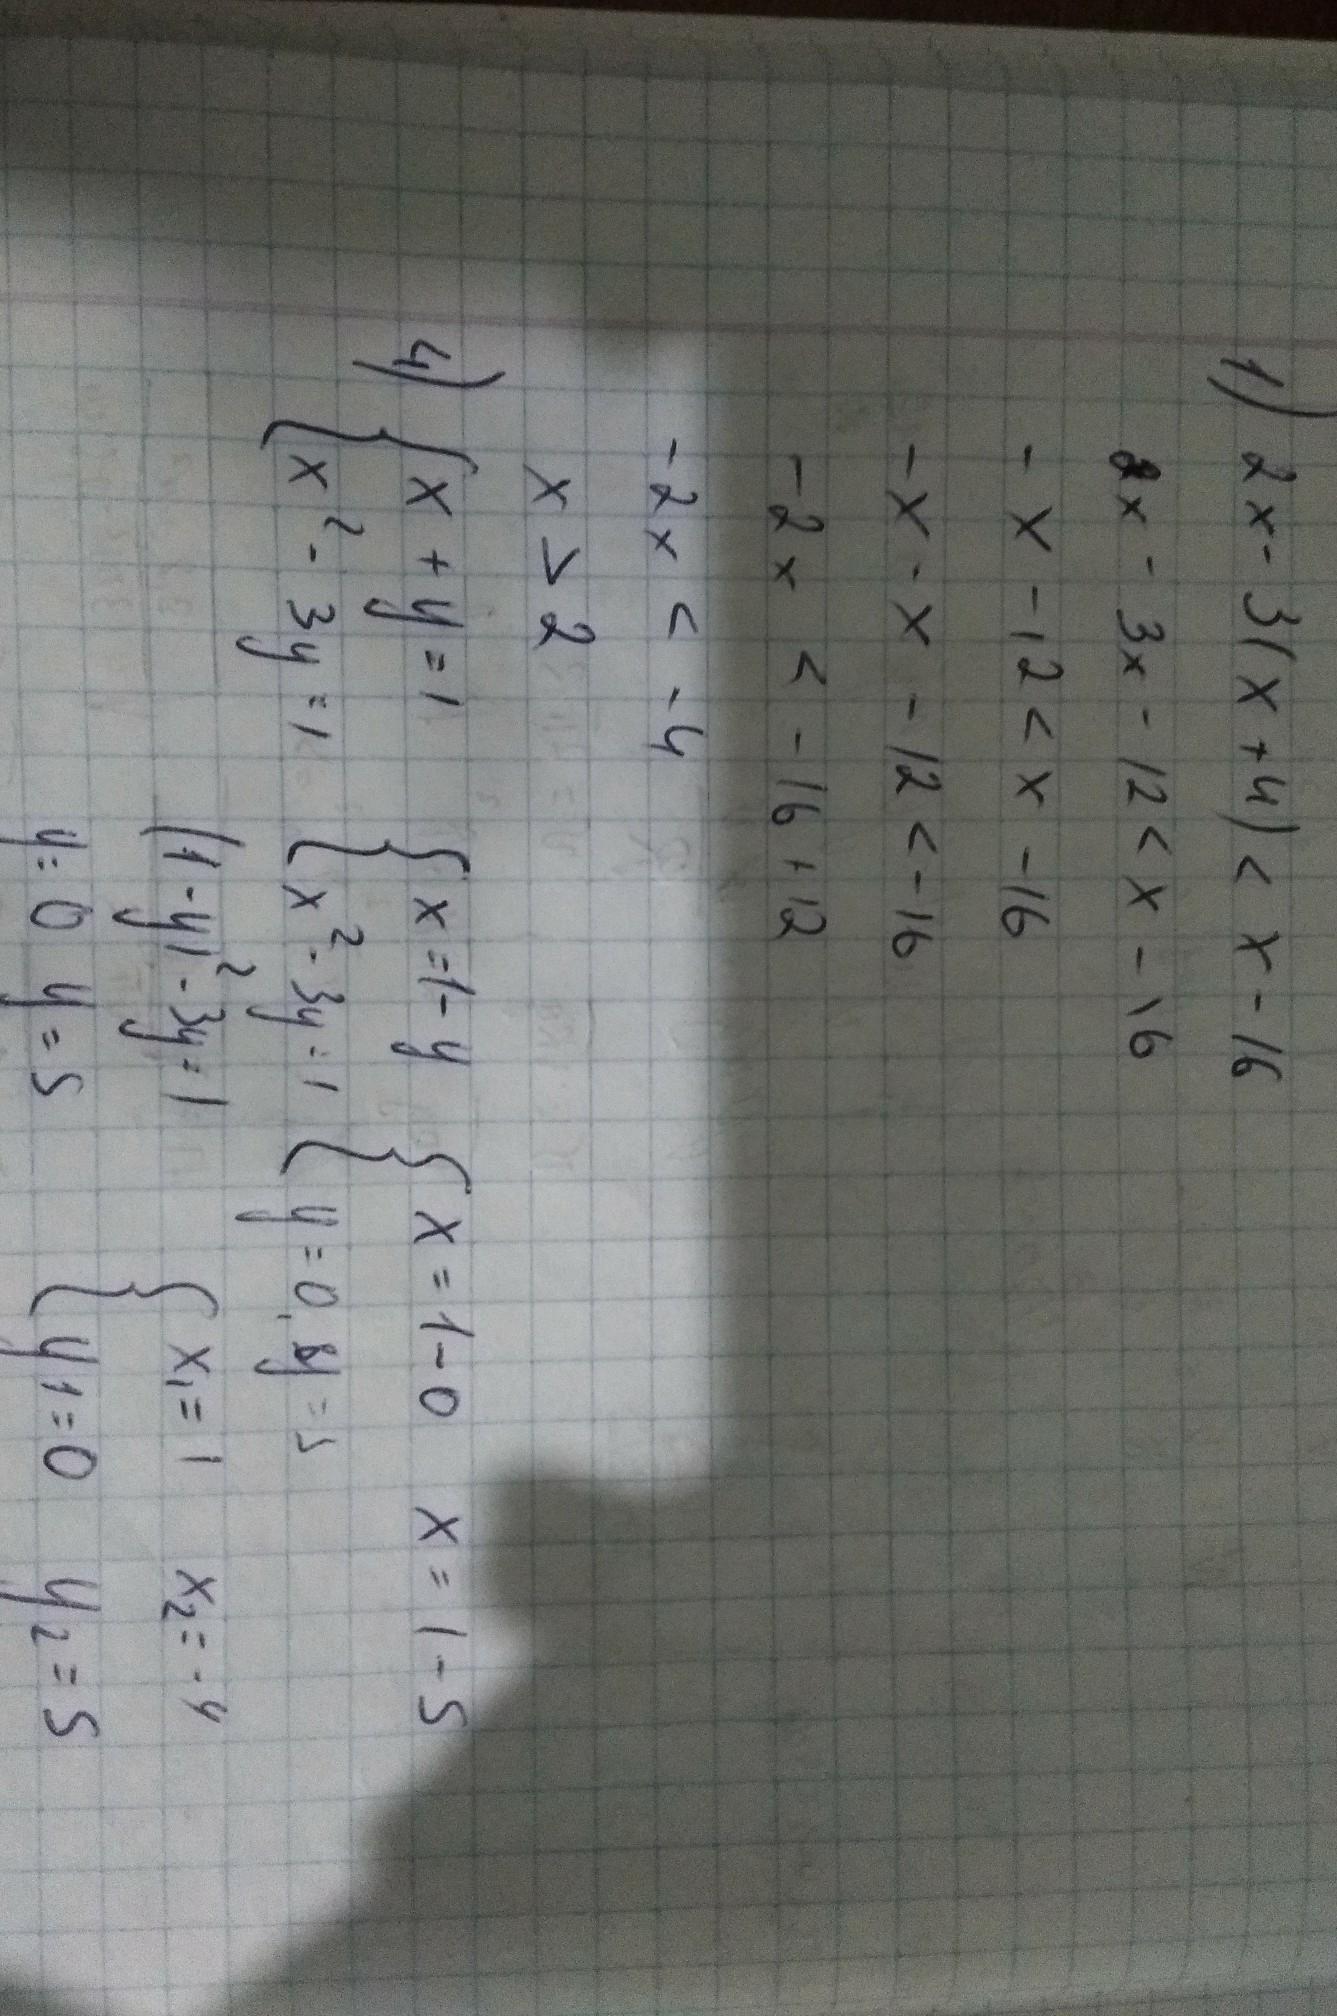 1) 2x - 3(x + 4) < x - 16
2x - 3x - 12 < x - 16
- x - 12 < x - 16
- x - x - 12 < - 16
- 2x < - 16 + 12
- 2x < - 4
x > 2
4) { x + y = 1 { x = 1 - y { x = 1 - 0 x = 1 - 5
x² - 3y = 1 x² - 3y = 1 y = 0, y = 5
(1 - y)² - 3y = 1 { x₁ = 1 x₂ = - 4
y = 0 y = 5 y1 = 0 y₂ = 5